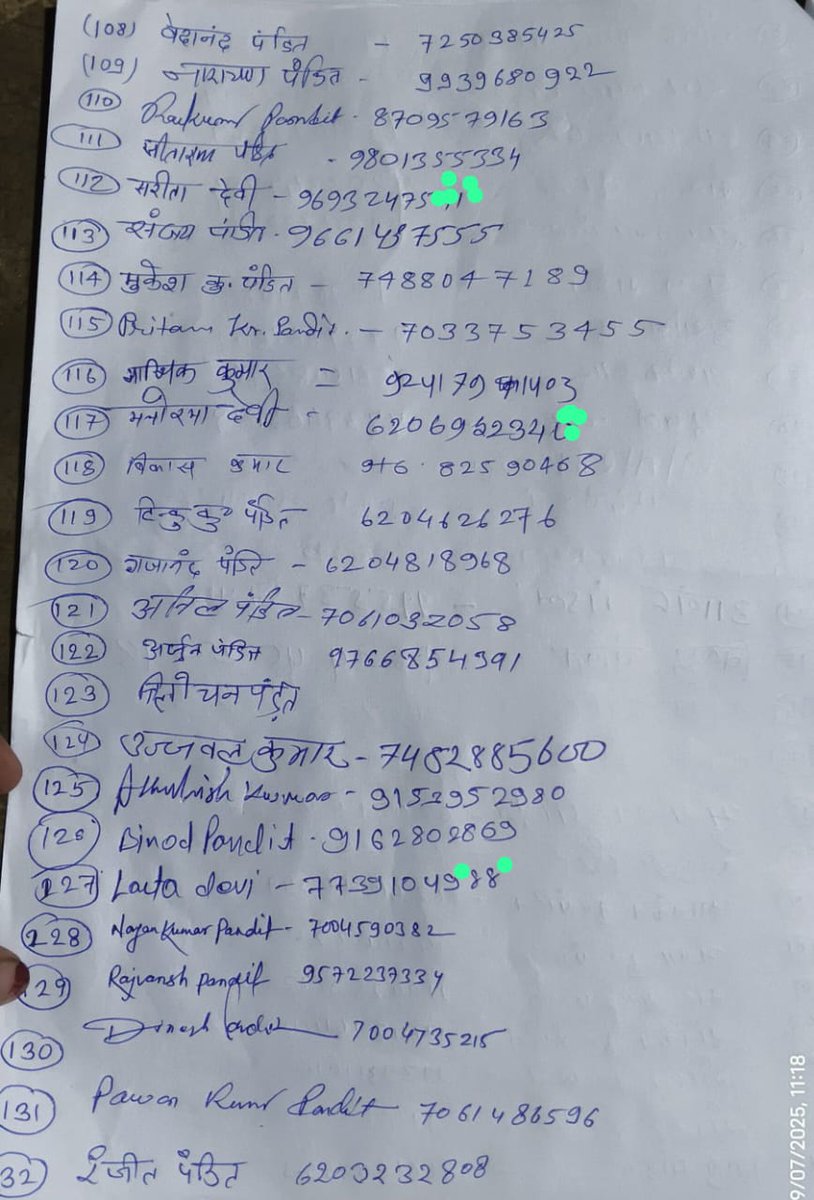 (108) वेदानंद पंडित - 7250385425
(109) नारायण पंडित - 9939680922
110 Rajkumar Pandit - 8709579163
111 सीताराम पंडित - 9801355334
112 सरीता देवी - 96932475
113 संजय पंडित - 9661487555
114 मुकेश कु. पंडित - 7488047189
115 Pritam Kr. Pandit. - 7033753455
116 कुमार = 924179 1403
117 मनोरमा देवी - 620696234
118 विकास कुमार 82590468
119 टिन्कु कु० पंडित 6204626276
120 गजानंद पंडित - 6204818968
121 अनिल पंडित - 7061032058
122 अर्जुन पंडित 9766854391
123 त्रिलोचन पंडित
124 उज्जवल कुमार - 7482885600
125 Kumar - 9152952980
126 Binod Pandit - 9162802869
127 Lalta devi - 7739104988
128 Nayan Kumar Pandit - 7004590382
129 Rajvansh pandit 9572237334
130 Dinesh Pandit 7004735215
131 Pawan Kumar Pandit 7061486596
32 रंजीत पंडित 6203232808
9/07/2025, 11:18